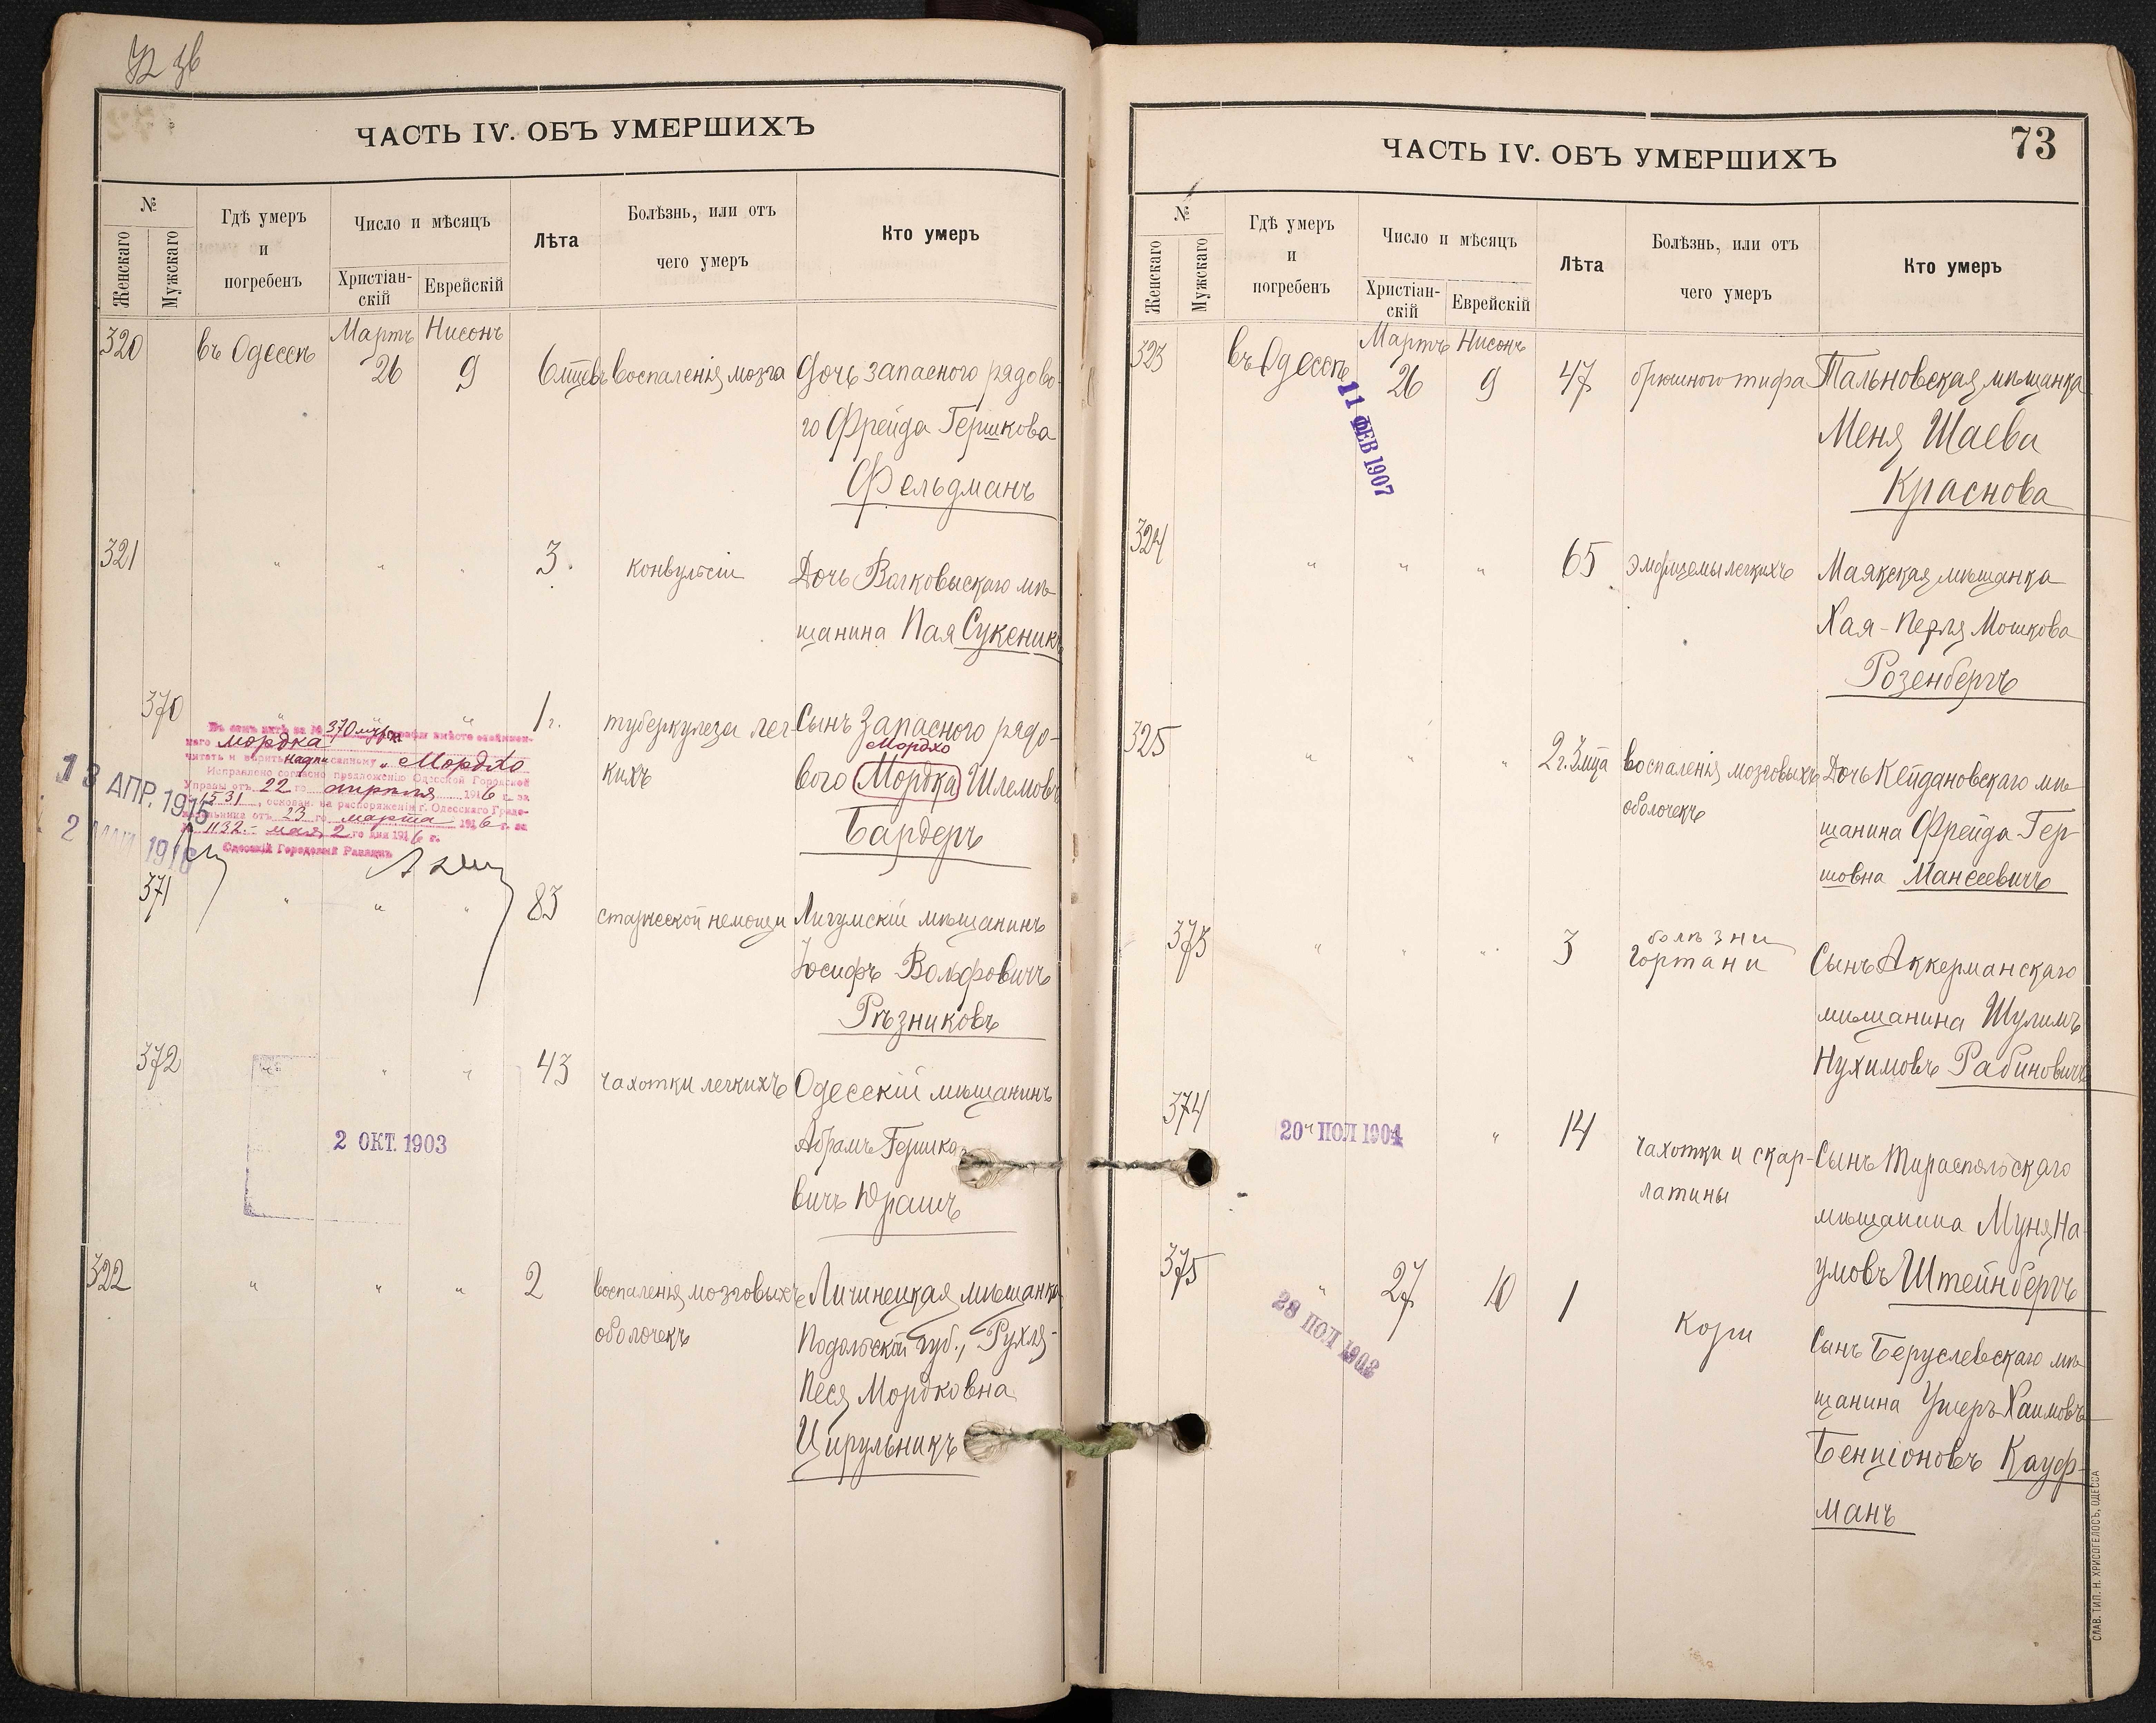 72 зв
ЧАСТЬ IV. ОБЪ УМЕРШИХЪ
№
Женскаго
Мужскаго
Гдѣ умеръ
и
погребенъ
Число и мѣсяцъ
Христіан-
скій
Еврейскій
Лѣта
Болѣзнь, или отъ
чего умеръ
Кто умеръ
320 въ Одессѣ Мартъ 26 Нисонъ 9 6 мцевъ воспаленія мозга Дочь запасного рядово-
го Фрейда Гершкова
Фельдманъ
321 " " " 3. конвульсіи Дочь Волковыскаго мѣ-
щанина Пая Сукеникъ
370 " " " 1 г. туберкулеза лег- Сынъ запасного рядо-
Мордхо
кихъ вого Мордка Шлемовъ
Бардеръ
Въ семъ актѣ за № 370 муж. вмѣсто
мордка
читать и вѣрить надписанному „Мордхо
Исправлено согласно предложенію Одесской Городской
Управы отъ 22 го апрѣля 1916 г. за
№ 1531, основан. на распоряженіи г. Одесскаго Градо-
начальника отъ 23 го марта 1916 г. за
№ 1132.- мая 2 го дня 1916 г.
Одесскій Городовой Раввинъ
13 АПР. 1915
2 МАЙ 1916
371 " " " 83 старческой немощи Лигумскій мѣщанинъ
Іосифъ Вольфовичъ
Рѣзниковъ
372 " " " 43 чахотки легкихъ Одесскій мѣщанинъ
Абрамъ Гершко-
вичъ Юрашъ
2 ОКТ. 1903
322 " " " 2 воспаленія мозговыхъ Личинецкая мѣщанка
оболочекъ Подольской губ., Рухля-
Песя Мордковна
Цирульникъ
ЧАСТЬ IV. ОБЪ УМЕРШИХЪ
73
№
Женскаго
Мужскаго
Гдѣ умеръ
и
погребенъ
Число и мѣсяцъ
Христіан-
скій
Еврейскій
Лѣта
Болѣзнь, или отъ
чего умеръ
Кто умеръ
323 въ Одессѣ Мартъ 26 Нисонъ 9 47 брюшного тифа Тальновская мѣщанка
Меня Шаева
Краснова
11 ФЕВ 1907
324 " " " 65 эмфиземы легкихъ Маякская мѣщанка
Хая-Перля Мошкова
Розенбергъ
325 " " " 2 г. 3 мца воспаленія мозговыхъ Дочь Кейдановскаго мѣ-
оболочекъ щанина Фрейда Гер-
шовна Мансевичъ
373 " " " 3 болѣзни
гортани Сынъ Аккерманскаго
мѣщанина Шулимъ
Нухимовъ Рабиновичъ
374 " " 14 чахотки и скар- Сынъ Тираспольскаго
латины мѣщанина Муня На-
умовъ Штейнбергъ
20 ПОЛ 1904
375 " 27 10 1 кори Сынъ Беруслевскаго мѣ-
щанина Ушеръ-Хаимовъ
Бенціоновъ Кауф-
манъ
28 ПОЛ 1902
СЛАВ. ТИП. Н. ХРИСОГЕЛОСЪ, ОДЕССА